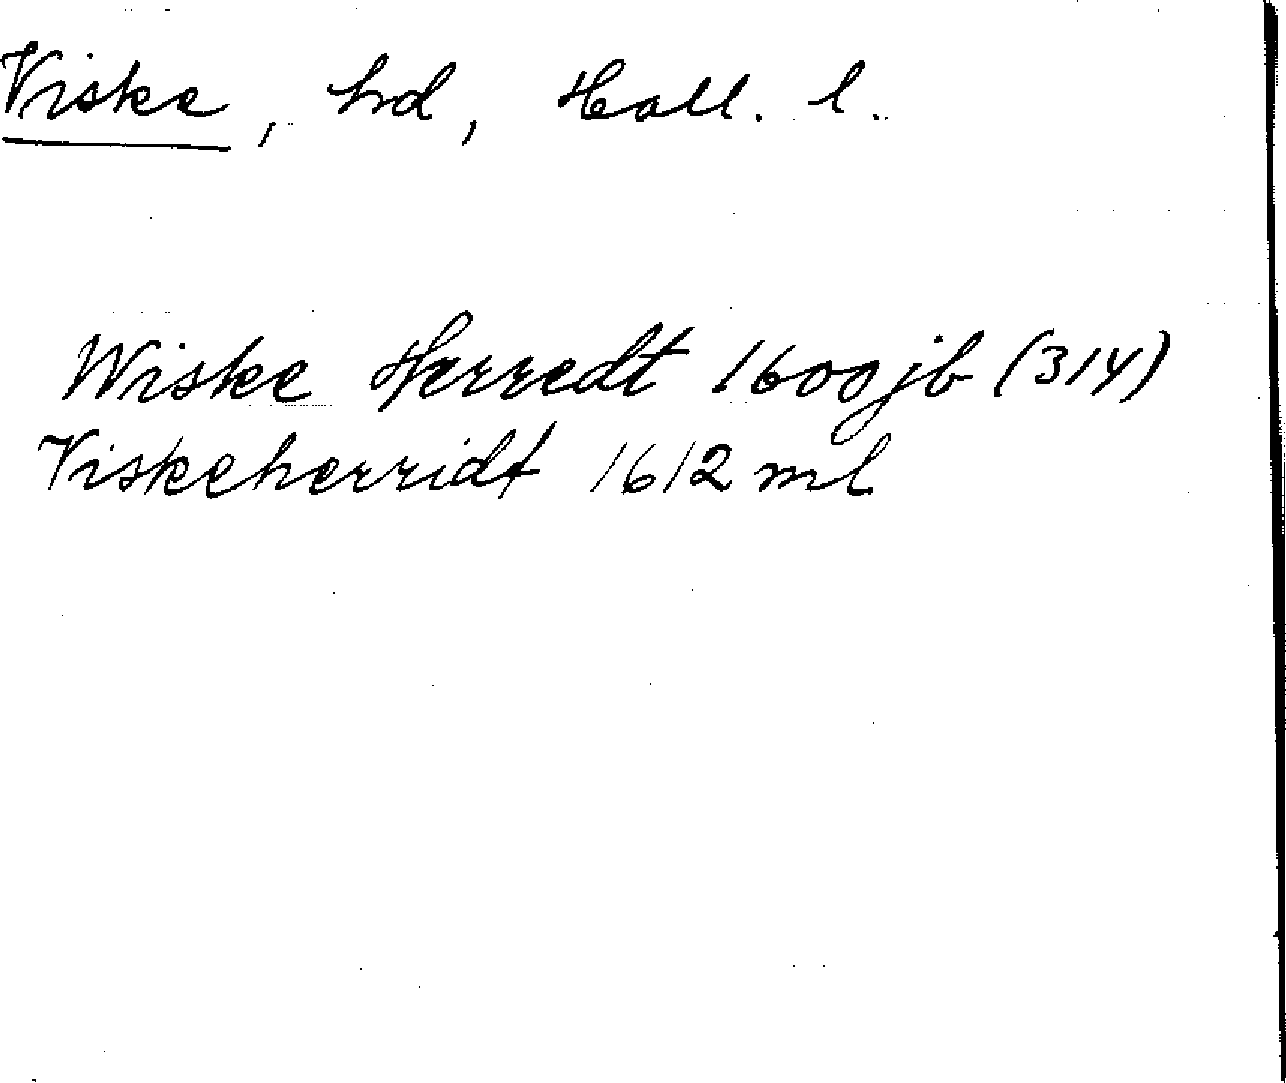 Viske, hd, Hall. l.
Wiske Herredt 1600 jb (314)
Viskeherridt 1612 ml